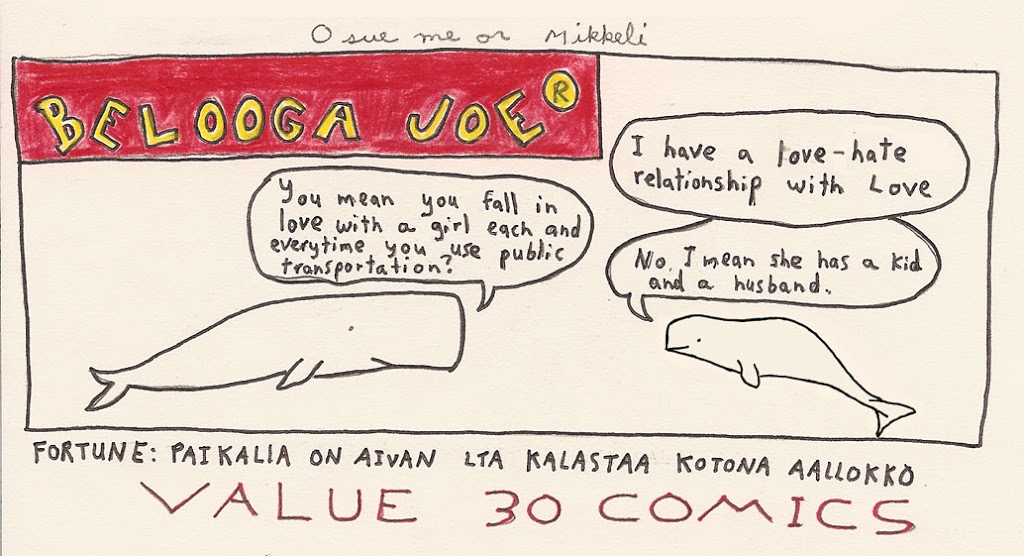 O sue me or Mikkeli
BELOOGA JOE®
I have a love-hate
relationship with Love
You mean you fall in
love with a girl each and
everytime you use public
transportation?
No, I mean she has a kid
and a husband.
FORTUNE: PAIKALLA ON AIVAN LTA KALASTAA KOTONA AALLOKKO
VALUE 30 COMICS